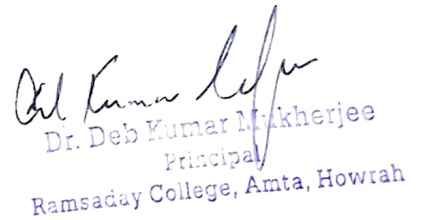 Dr. Deb Kumar Mukherjee
Principal
Ramsaday College, Amta, Howrah